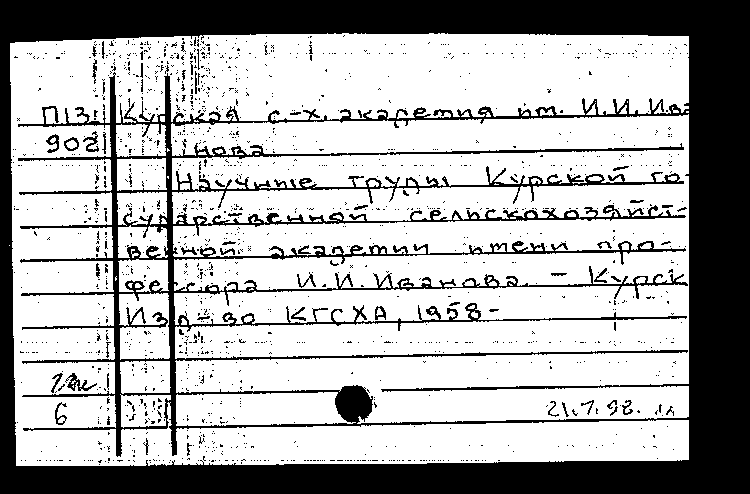 П13: Курская с.-х. академия им. И.И. Ива
902 нова
Научные труды Курской го-
сударственной сельскохозяйст-
венной академии имени про-
фессора И.И. Иванова. - Курск
Изд-во КГСХА, 1958-
6 21.7.98.